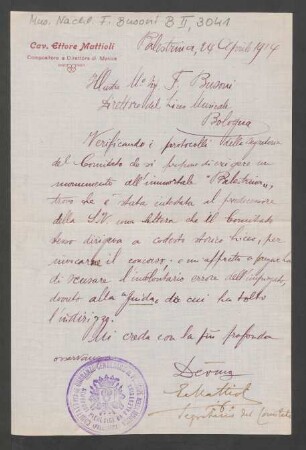 Mus. Nachl. F. Busoni B II, 3041
Cav. Ettore Mattioli
Compositore e Direttore di Musica
Palestrina, 24 Aprile 1914
Illustre Mo Sig F. Busoni
Direttore del Liceo Musicale,
Bologna
Verificando i protocolli della segreteria
del Comitato che si di erigere un
monumento all'immortale "Palestrina,
trovo che è stata intestata al predecessore
della S.V. una lettera che il Comitato
dirigere a codesto storico Liceo, per
il concorso: e mi affretto a pregarla
di scusare l'involontario errore dell'impiegato,
dovuto alla guida, da cui ha tolto
l'indirizzo.
Mi creda con la più profonda
osservanza
Devmo
E. Mattioli
Segretario del Comitato